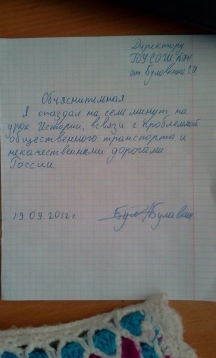 Директору
от Булавина
Обяснительная
Я опаздал на семь минут на
урок Истории, всвязи с проблемой
общественного транспорта и
некачественными дорогами
России
19.09.2012 г.
Булавин